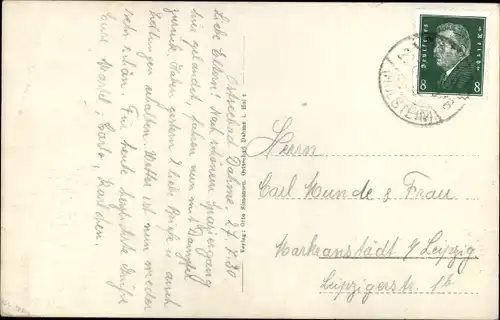 Ostseebad Dahme. 27.7.30
Liebe Eltern! Nach schönem Spaziergang
hier gelandet, fahren nun mit Dampfer
zurück. Haben gestern 2 liebe Briefe u. auch
erhalten. Wetter ist nun wieder
sehr schön. Für heute herzl. Grüße
Eure Martel, Carlo, Karlchen.
Verlag: Otto Ostseebad Dahme i. Holst.
Deutsches Reich
8 8
Herrn
Carl Munde & Frau
Markranstädt b/ Leipzig
Leipzigerstr. 1b